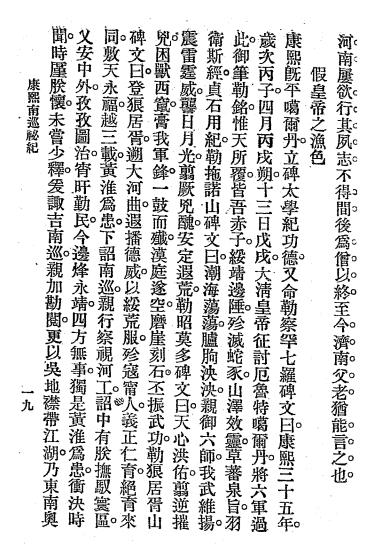 河南屢欲行其夙志不得間後爲僧以終至今濟南父老猶能言之也
假皇帝之漁色
康熙旣平噶爾丹立碑太學紀功德又命勒察罕七羅碑文曰康熙三十五年。
歲次丙子四月丙戌朔十三日戊戌大淸皇帝征討厄魯特噶爾丹將六軍過
此御筆勒銘惟天所覆皆吾赤子綏靖邊陲殄滅蛇豕山澤效靈草蕃泉旨羽
衛斯經貞石用紀勒拖諾山碑文曰瀚海蕩蕩臚朐泱泱親御六師我武維揚
震雷霆威讋日月光翦厥兇醜安定遐荒勒昭莫多碑文曰天心洪佑翦逆摧
兇困獸西竄膏我軍鋒一鼓而殲漠庭遂空磨崖刻石丕振武功勒狼居胥山
碑文曰登狼居胥遡大河曲遐播德威以綏荒服殄寇甯人義正仁育絕育來
同敷天永福越三載黃淮爲患下詔南巡親行察視河工詔中有朕撫馭寰區。
又安中外孜孜圖治宵旰勤民今邊烽永靖四方無事獨是黃淮爲患衝決時
聞時厪朕懷未嘗少釋爰諏吉南巡親加勘閱更以吳地襟帶江湖乃東南奧
康熙南巡祕紀
一九